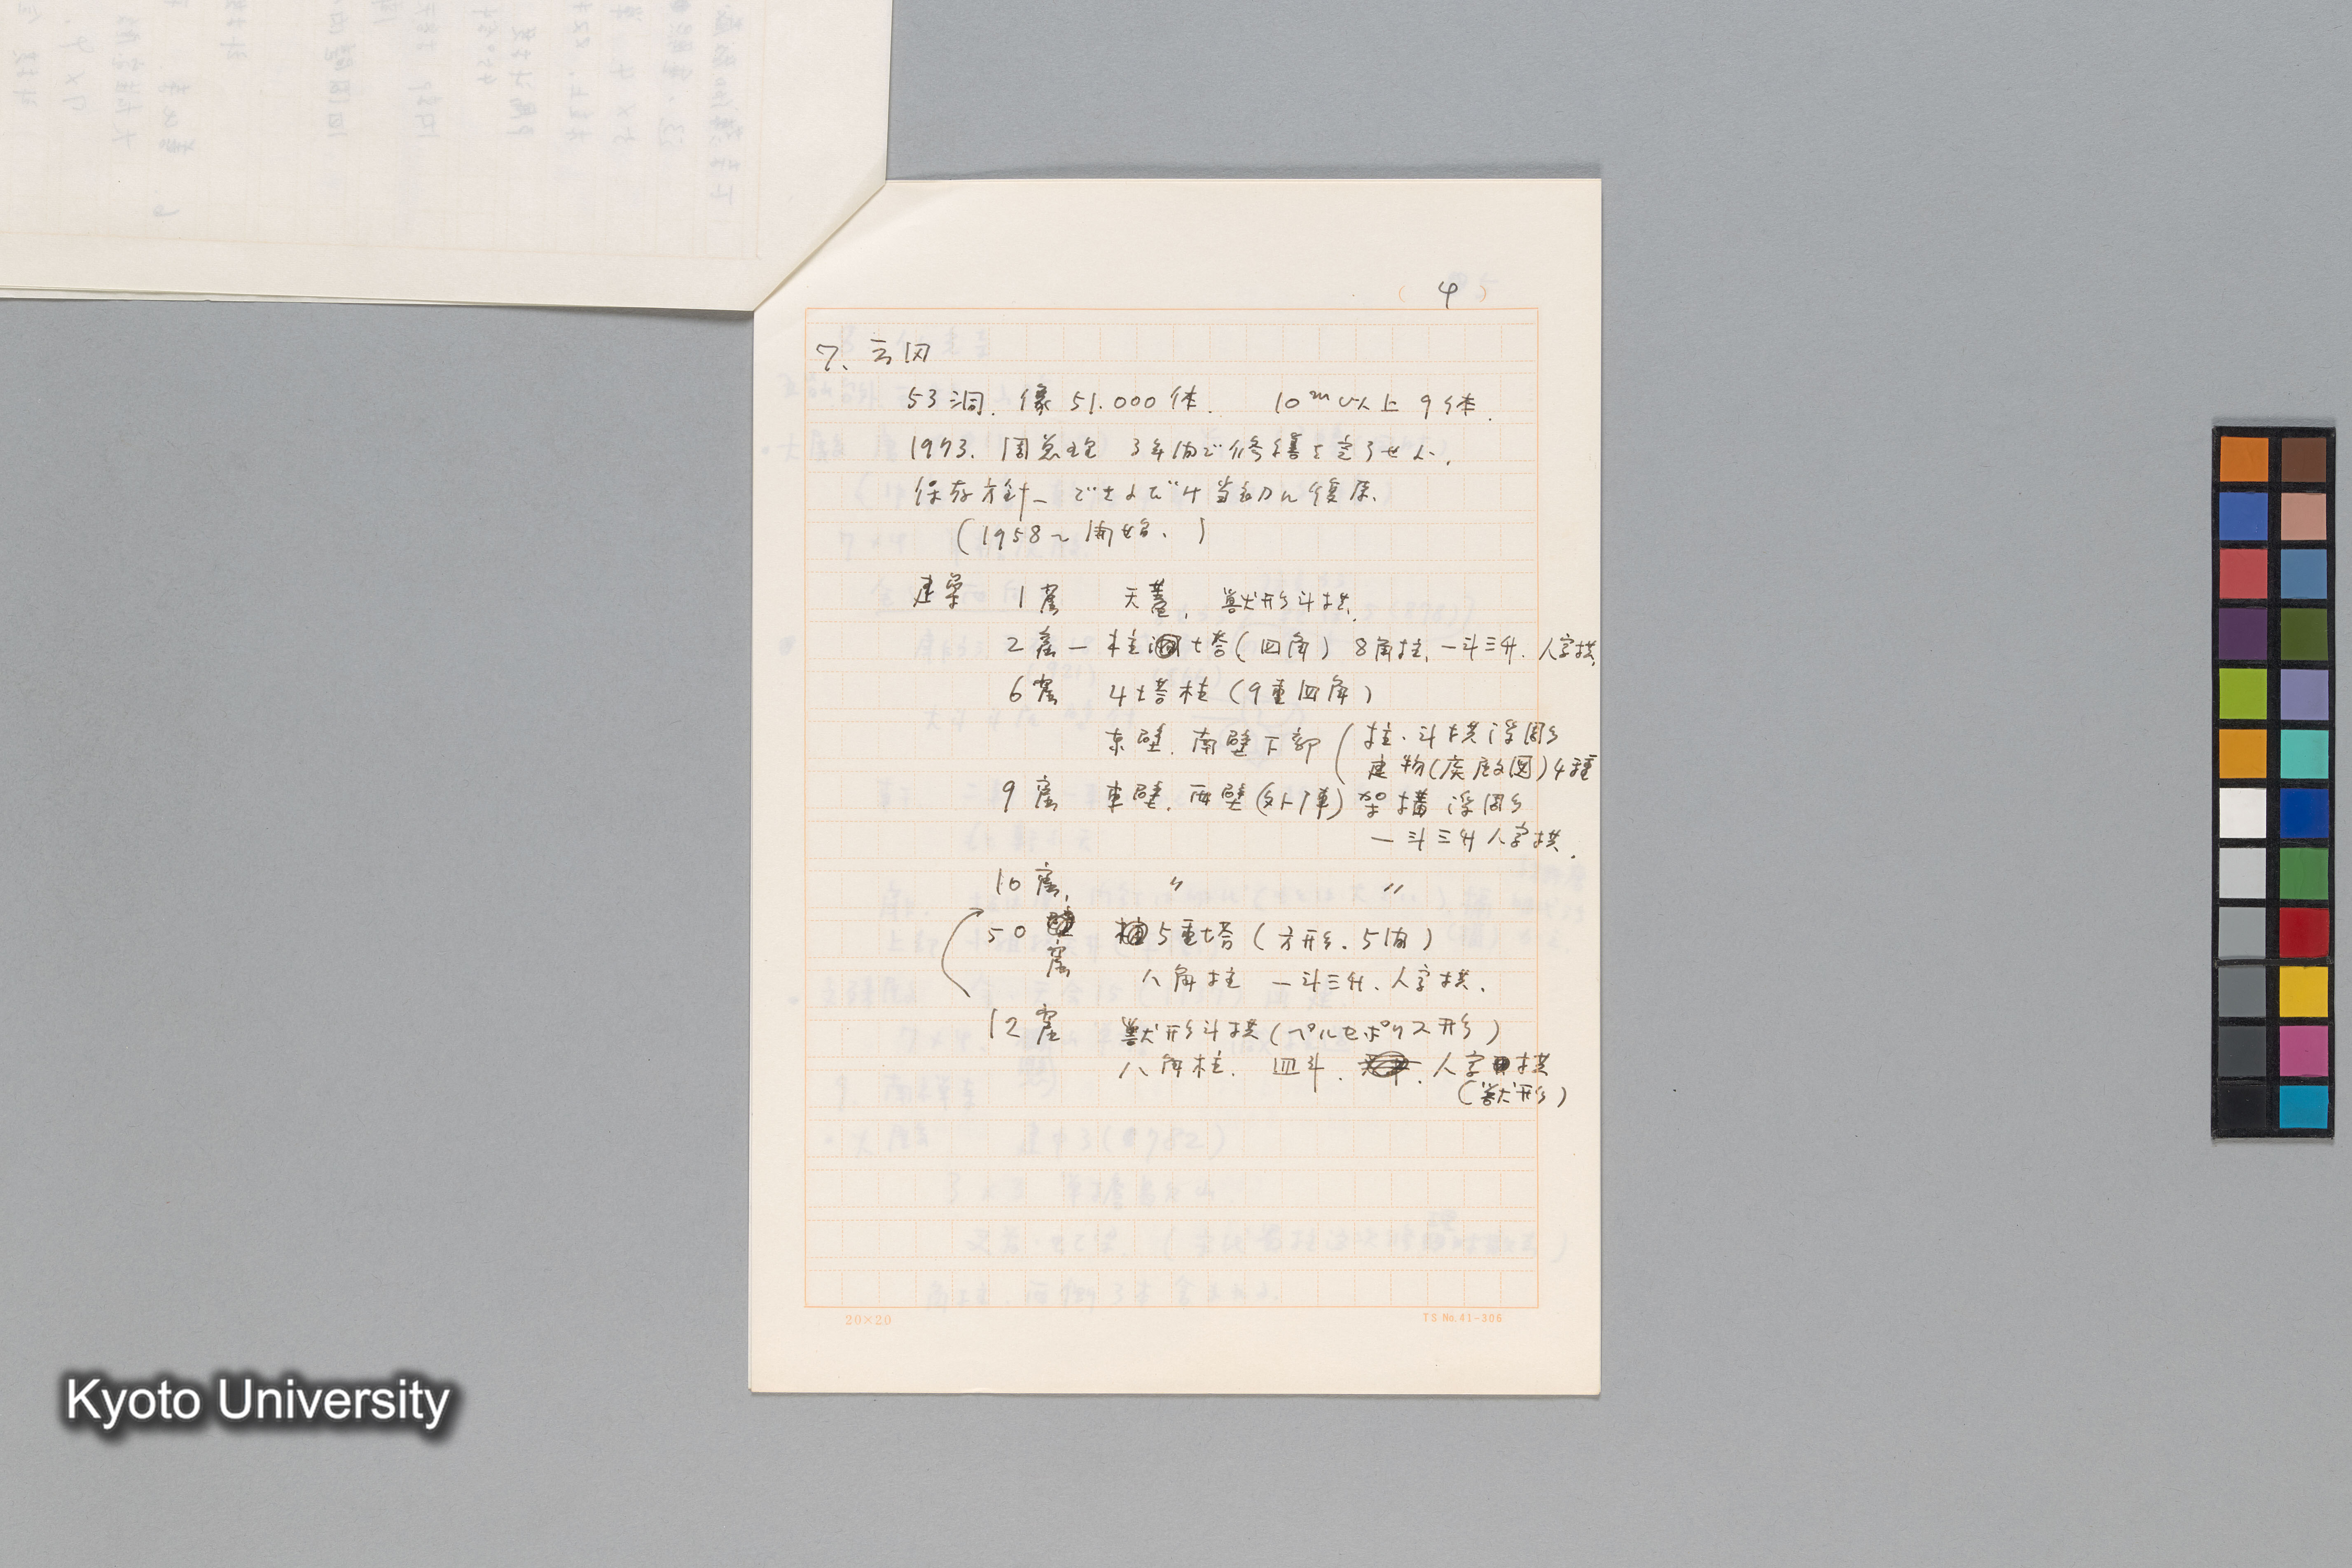 4
7. 云冈
53洞. 像 51.000体. 10m以上 9体.
1973. 周总理 3年内で修繕を完了せよ.
保存方針— できるだけ当初に復原.
(1958〜開始.)
建築 1窟 天蓋. 獣形斗拱.
2窟— 柱 塔(四角) 8角柱. 一斗三升. 人字拱.
6窟 4塔柱(9重四角)
東壁. 南壁下部 (柱・斗拱浮彫
建物( 図)4種
9窟 東壁. 西壁(外陣) 架構 浮彫
一斗三升人字拱.
10窟. 〃 〃
50 窟 5重塔(方形. 5間)
八角柱 一斗三升. 人字拱.
12窟 獣形斗拱(ペルセポリス形)
八角柱. 皿斗. 人字拱
(獣形)
20×20
TS No.41-306
Kyoto University